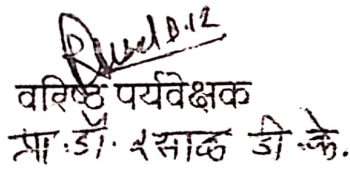 वरिष्ठ पर्यवेक्षक
प्रा.डॉ. रसाळ डी.के.